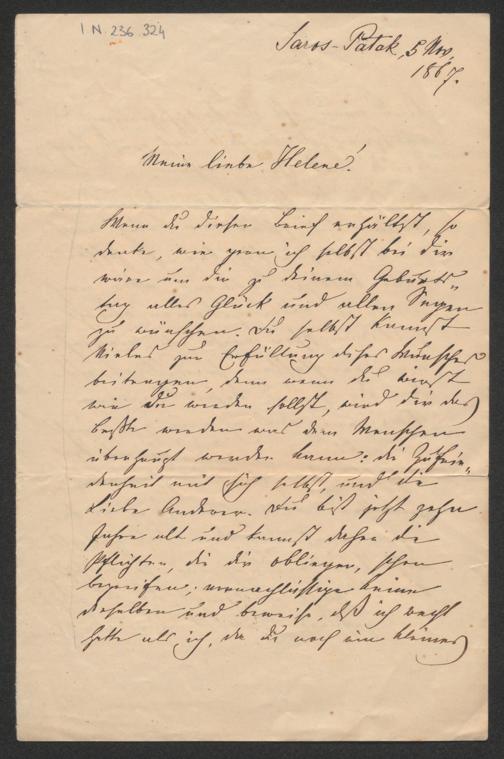 I.N. 236.324
Saros-Patak, 5 Nov.
1867.
Meine liebe Helene!
Wenn du diesen Brief erhältst, so
denke, wie gern ich selbst bei dir
wäre um dir zu deinem Geburts-
tag alles Glück und allen Segen
zu wünschen. Du selbst kannst
Vieles zur Erfüllung dieses Wunsches
beitragen, denn wenn du wirst
wie du werden sollst, wird dir das
Beßte werden was dem Menschen
überhaupt werden kann: die Zufrie-
denheit mit sich selbst, und die
Liebe Anderer. Du bist jetzt zehn
Jahre alt und kannst daher die
Pflichten, die dir obliegen, schon
begreifen; vernachlässige keine
derselben und beweise, daß ich recht
hatte als ich, da du noch ein kleines